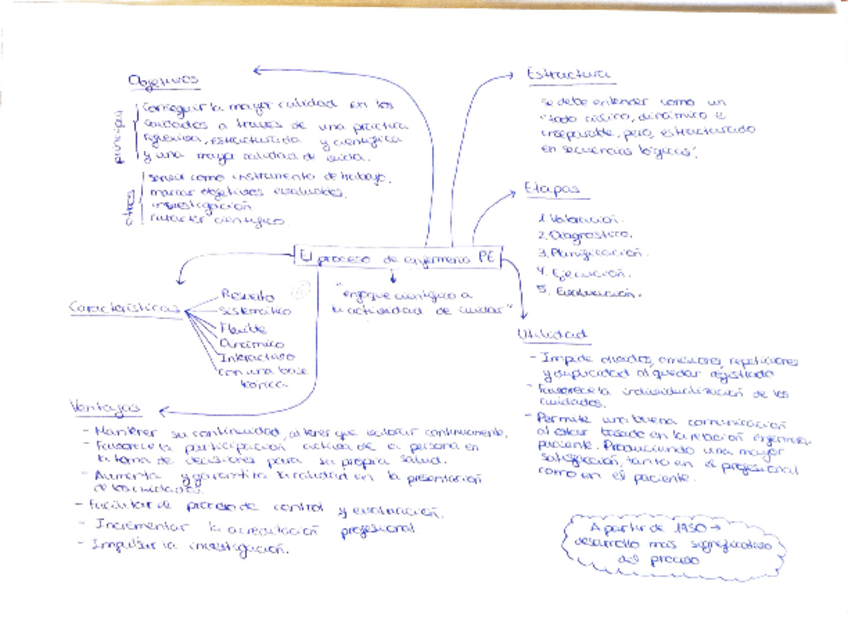 Objetivos
principal
Conseguir la mayor calidad en los
cuidados a través de una práctica
rigurosa, estructurada y científica
y una mayor calidad de
otros
servir como instrumento de trabajo.
marcar objetivos evaluables.
investigación
carácter científico.
Estructura
se debe entender como un
"todo cíclico, dinámico e
inseparable, pero, estructurado
en secuencias lógicas".
Etapas
1. Valoración.
2. Diagnóstico.
3. Planificación.
4. Ejecución.
5. Evaluación.
El proceso de enfermería PE
"enfoque científico a
la actividad de cuidar"
Características
Resuelto
Sistemático
Flexible
Dinámico
Interactivo
con una base
teórica.
Utilidad
- Impide olvidos, omisiones, repeticiones
y duplicidad al quedar registrado
- Favorece la individualización de los
cuidados.
- Permite una buena comunicación
al estar basado en la relación
paciente. Produciendo una mayor
satisfacción, tanto en el profesional
como en el paciente.
Ventajas
- Mantener su continuidad, al tener que valorar continuamente.
- Favorece la participación activa de la persona en
la toma de decisiones para su propia salud.
- Aumenta y garantiza la calidad en la presentación
de los cuidados.
- Facilitar de proceso de control y evaluación.
- Incrementar la acreditación profesional
- Impulsar la investigación.
A partir de 1950 →
desarrollo más significativo
del proceso